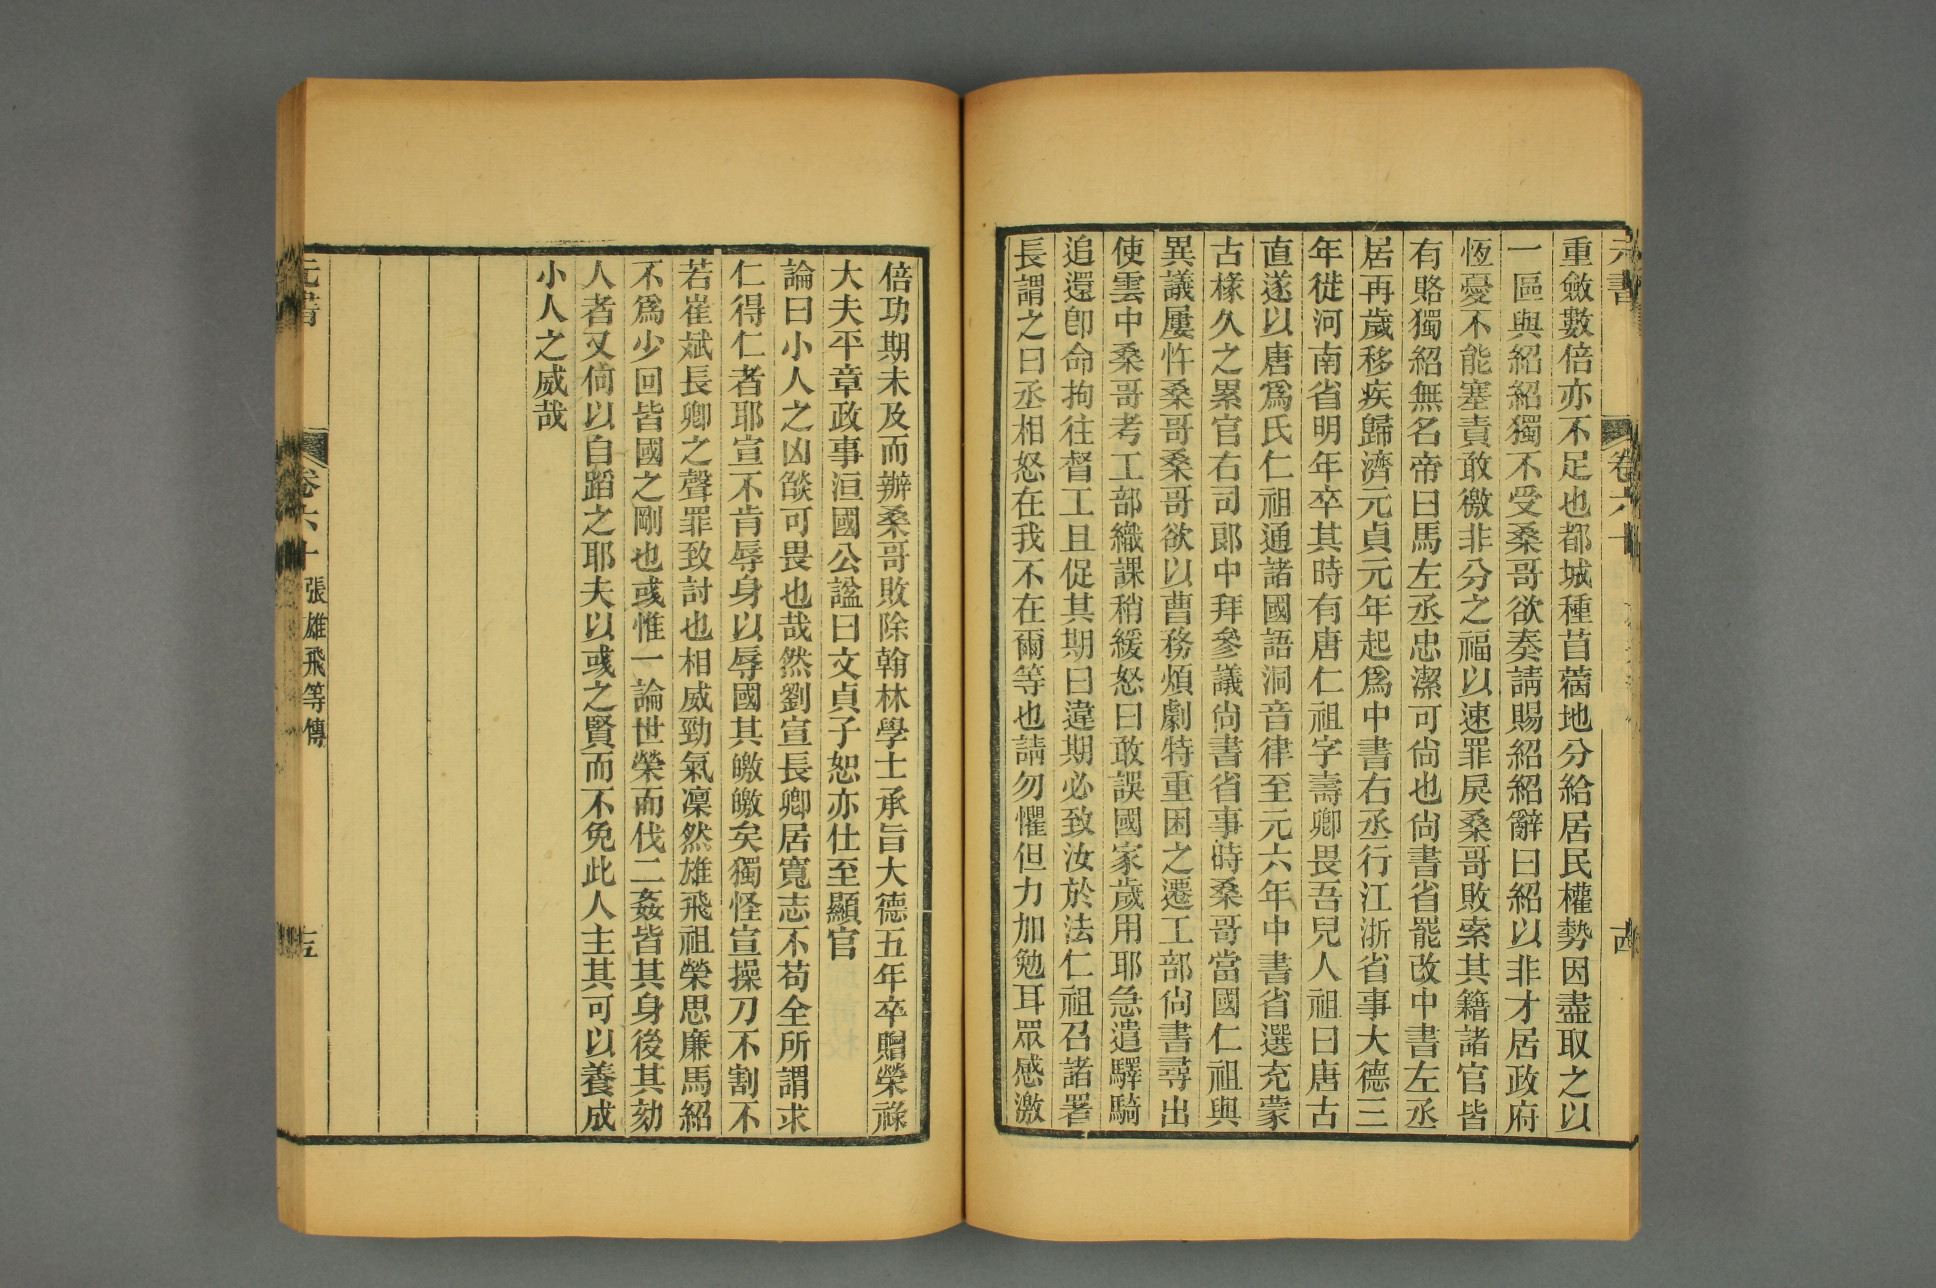 元書
卷六十
重斂數倍亦不足也都城種苜蓿地分給居民權勢因盡取之以
一區與紹紹獨不受桑哥欲奏請賜紹紹辭曰紹以非才居政府
恆憂不能塞責敢徼非分之福以速罪戾桑哥敗索其籍諸官皆
有賂獨紹無名帝曰馬左丞忠潔可尙也尙書省罷改中書左丞
居再歲移疾歸濟元貞元年起爲中書右丞行江浙省事大德三
年徙河南省明年卒其時有唐仁祖字壽卿畏吾兒人祖曰唐古
直遂以唐爲氏仁祖通諸國語洞音律至元六年中書省選充蒙
古椽久之累官右司郞中拜參議尙書省事時桑哥當國仁祖與
異議屢忤桑哥桑哥欲以曹務煩劇特重困之遷工部尙書尋出
使雲中桑哥考工部織課稍緩怒曰敢誤國家歲用耶急遣驛騎
追還卽命拘往督工且促其期曰違期必致汝於法仁祖召諸署
長謂之曰丞相怒在我不在爾等也請勿懼但力加勉耳眾感激
倍功期未及而辦桑哥敗除翰林學士承旨大德五年卒贈榮祿
大夫平章政事洹國公謚曰文貞子恕亦仕至顯官
論曰小人之凶燄可畏也哉然劉宣長卿居寬志不苟全所謂求
仁得仁者耶宣不肯辱身以辱國其皦皦矣獨怪宣操刀不割不
若崔斌長卿之聲罪致討也相威勁氣凜然雄飛祖榮思廉馬紹
不爲少回皆國之剛也或惟一論世榮而伐二姦皆其身後其劾
人者又倘以自蹈之耶夫以彧之賢而不免此人主其可以養成
小人之威哉
元書
卷六十
張雄飛等傳